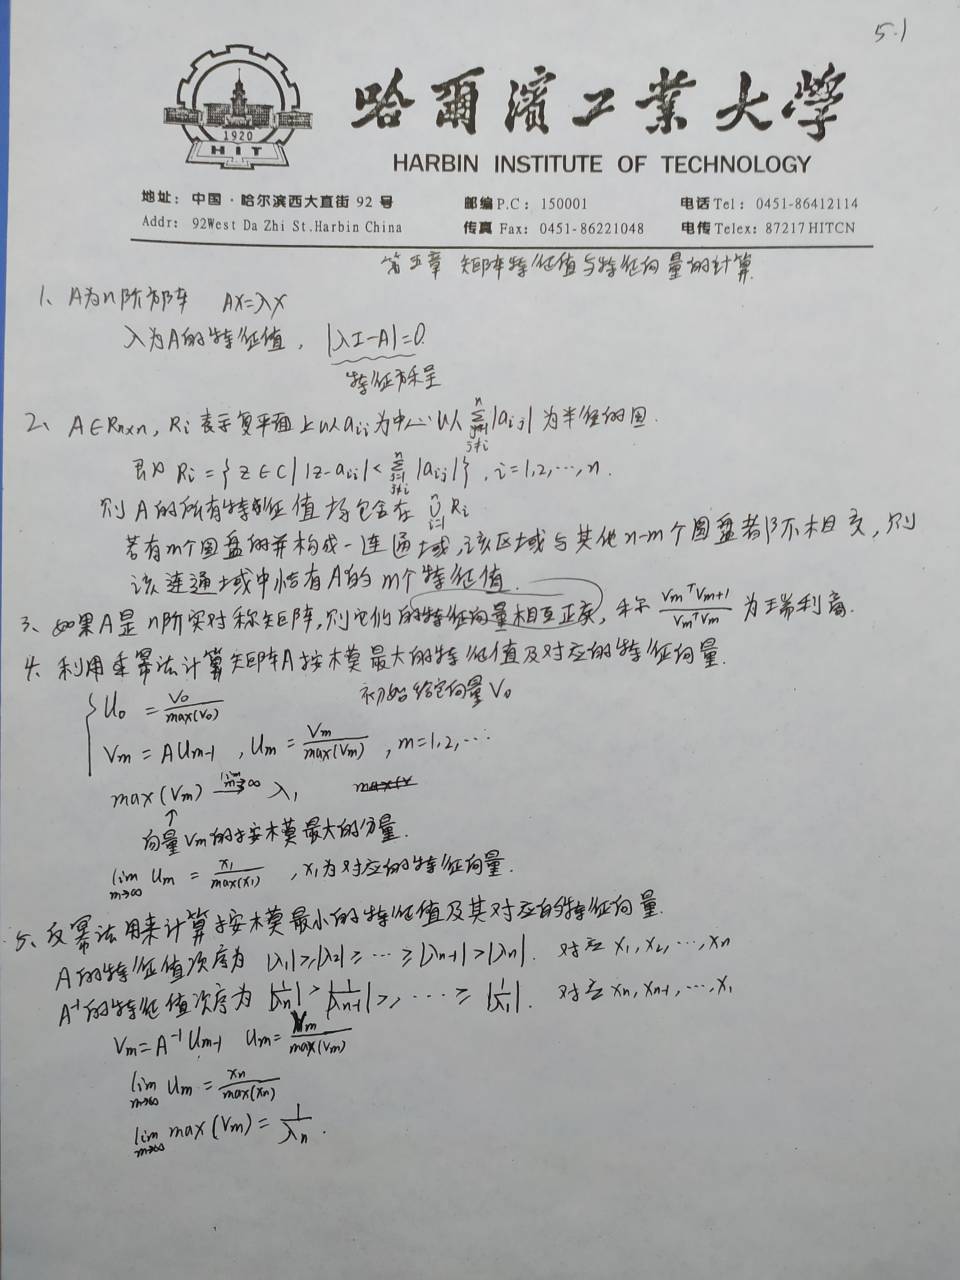 5.1
1920
HIT
哈爾濱工業大學
HARBIN INSTITUTE OF TECHNOLOGY
地址：中国·哈尔滨西大直街 92 号 邮编 P.C: 150001 电话 Tel: 0451-86412114
Addr: 92West Da Zhi St.Harbin China 传真 Fax: 0451-86221048 电传 Telex: 87217 HITCN
第五章 矩阵特征值与特征向量的计算
1、A为n阶方阵 AX=λX
λ为A的特征值，|λI-A|=0.
特征方程
2、A∈Rn×n，Ri 表示复平面上以aii为中心以 ∑_{j=1,j≠i}^{n}|aij| 为半径的圆.
即 Ri={z∈C| |z-aii|<∑_{j=1,j≠i}^{n}|aij|}，i=1,2,…,n.
则A的所有特征值均包含在 ∪_{i=1}^{n} Ri
若有m个圆盘的并构成一连通域，该区域与其他n-m个圆盘都不相交，则
该连通域中恰有A的m个特征值.
3、如果A是n阶实对称矩阵，则它们的特征向量相互正交，称 Vm^T Vm+1 / Vm^T Vm 为瑞利商.
4、利用乘幂法计算矩阵A按模最大的特征值及对应的特征向量.
U0 = V0/max(V0) 初始给定向量V0
Vm = AUm-1，Um = Vm/max(Vm)，m=1,2,…
max(Vm) →(lim m→∞) λ1
↑
向量Vm的按模最大的分量.
lim_{m→∞} Um = x1/max(x1)，x1为对应的特征向量.
5、反幂法用来计算按模最小的特征值及其对应的特征向量.
A的特征值次序为 |λ1|≥|λ2|≥…≥|λn-1|>|λn|. 对应 x1,x2,…,xn
A^-1的特征值次序为 |1/λn|>|1/λn-1|≥…≥|1/λ1|. 对应 xn,xn-1,…,x1
Vm=A^-1 Um-1 Um=Vm/max(Vm)
lim_{m→∞} Um = xn/max(xn)
lim_{m→∞} max(Vm) = 1/λn.